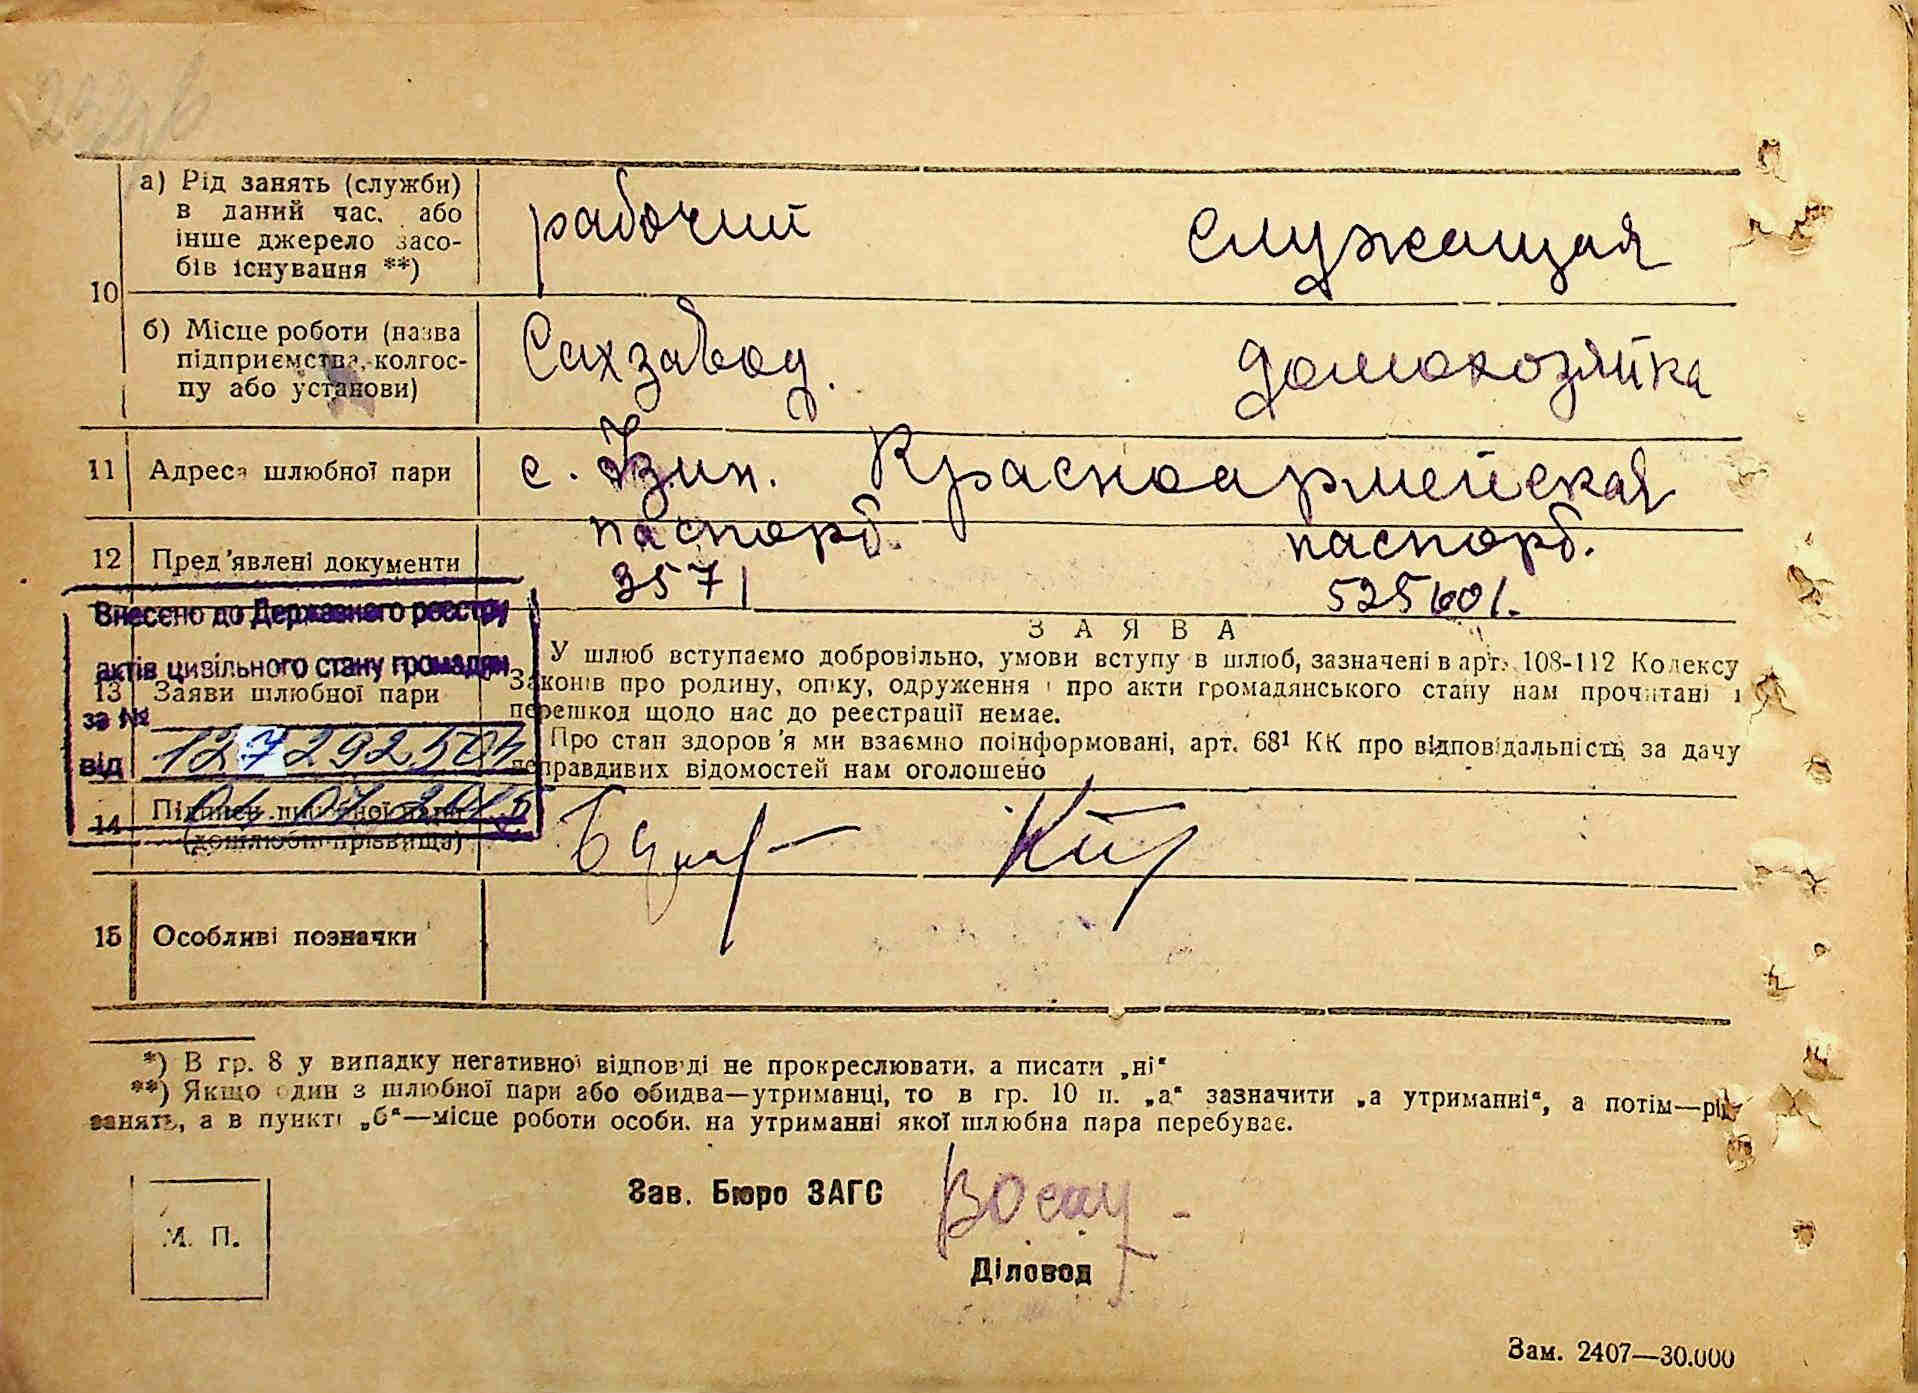 10
а) Рід занять (служби)
в даний час, або
інше джерело засо-
бів існування **)
рабочий служащая
б) Місце роботи (назва
підприємства, колгос-
пу або установи)
Сахзавод. домохозяйка
11 Адреса шлюбної пари с. Узин. Красноармейская
12 Пред'явлені документи
паспорт. паспорт.
3571 525601.
Внесено до Державного реєстру
актів цивільного стану громадян
за №
від
13 Заяви шлюбної пари
ЗАЯВА
У шлюб вступаємо добровільно, умови вступу в шлюб, зазначені в арт. 108-112 Кодексу
Законів про родину, опіку, одруження і про акти громадянського стану нам прочитані і
перешкод щодо нас до реєстрації немає.
Про стан здоров'я ми взаємно поінформовані, арт. 68¹ КК про відповідальність за дачу
неправдивих відомостей нам оголошено
14 Підписи шлюбної пари
(дошлюбні прізвища)
15 Особливі позначки
*) В гр. 8 у випадку негативної відповіді не прокреслювати, а писати „ні“
**) Якщо один з шлюбної пари або обидва—утриманці, то в гр. 10 п. „а“ зазначити „а утриманні“, а потім—рід
занять, а в пункті „б“—місце роботи особи, на утриманні якої шлюбна пара перебуває.
М. П.
Зав. Бюро ЗАГС
Діловод
Зам. 2407—30.000